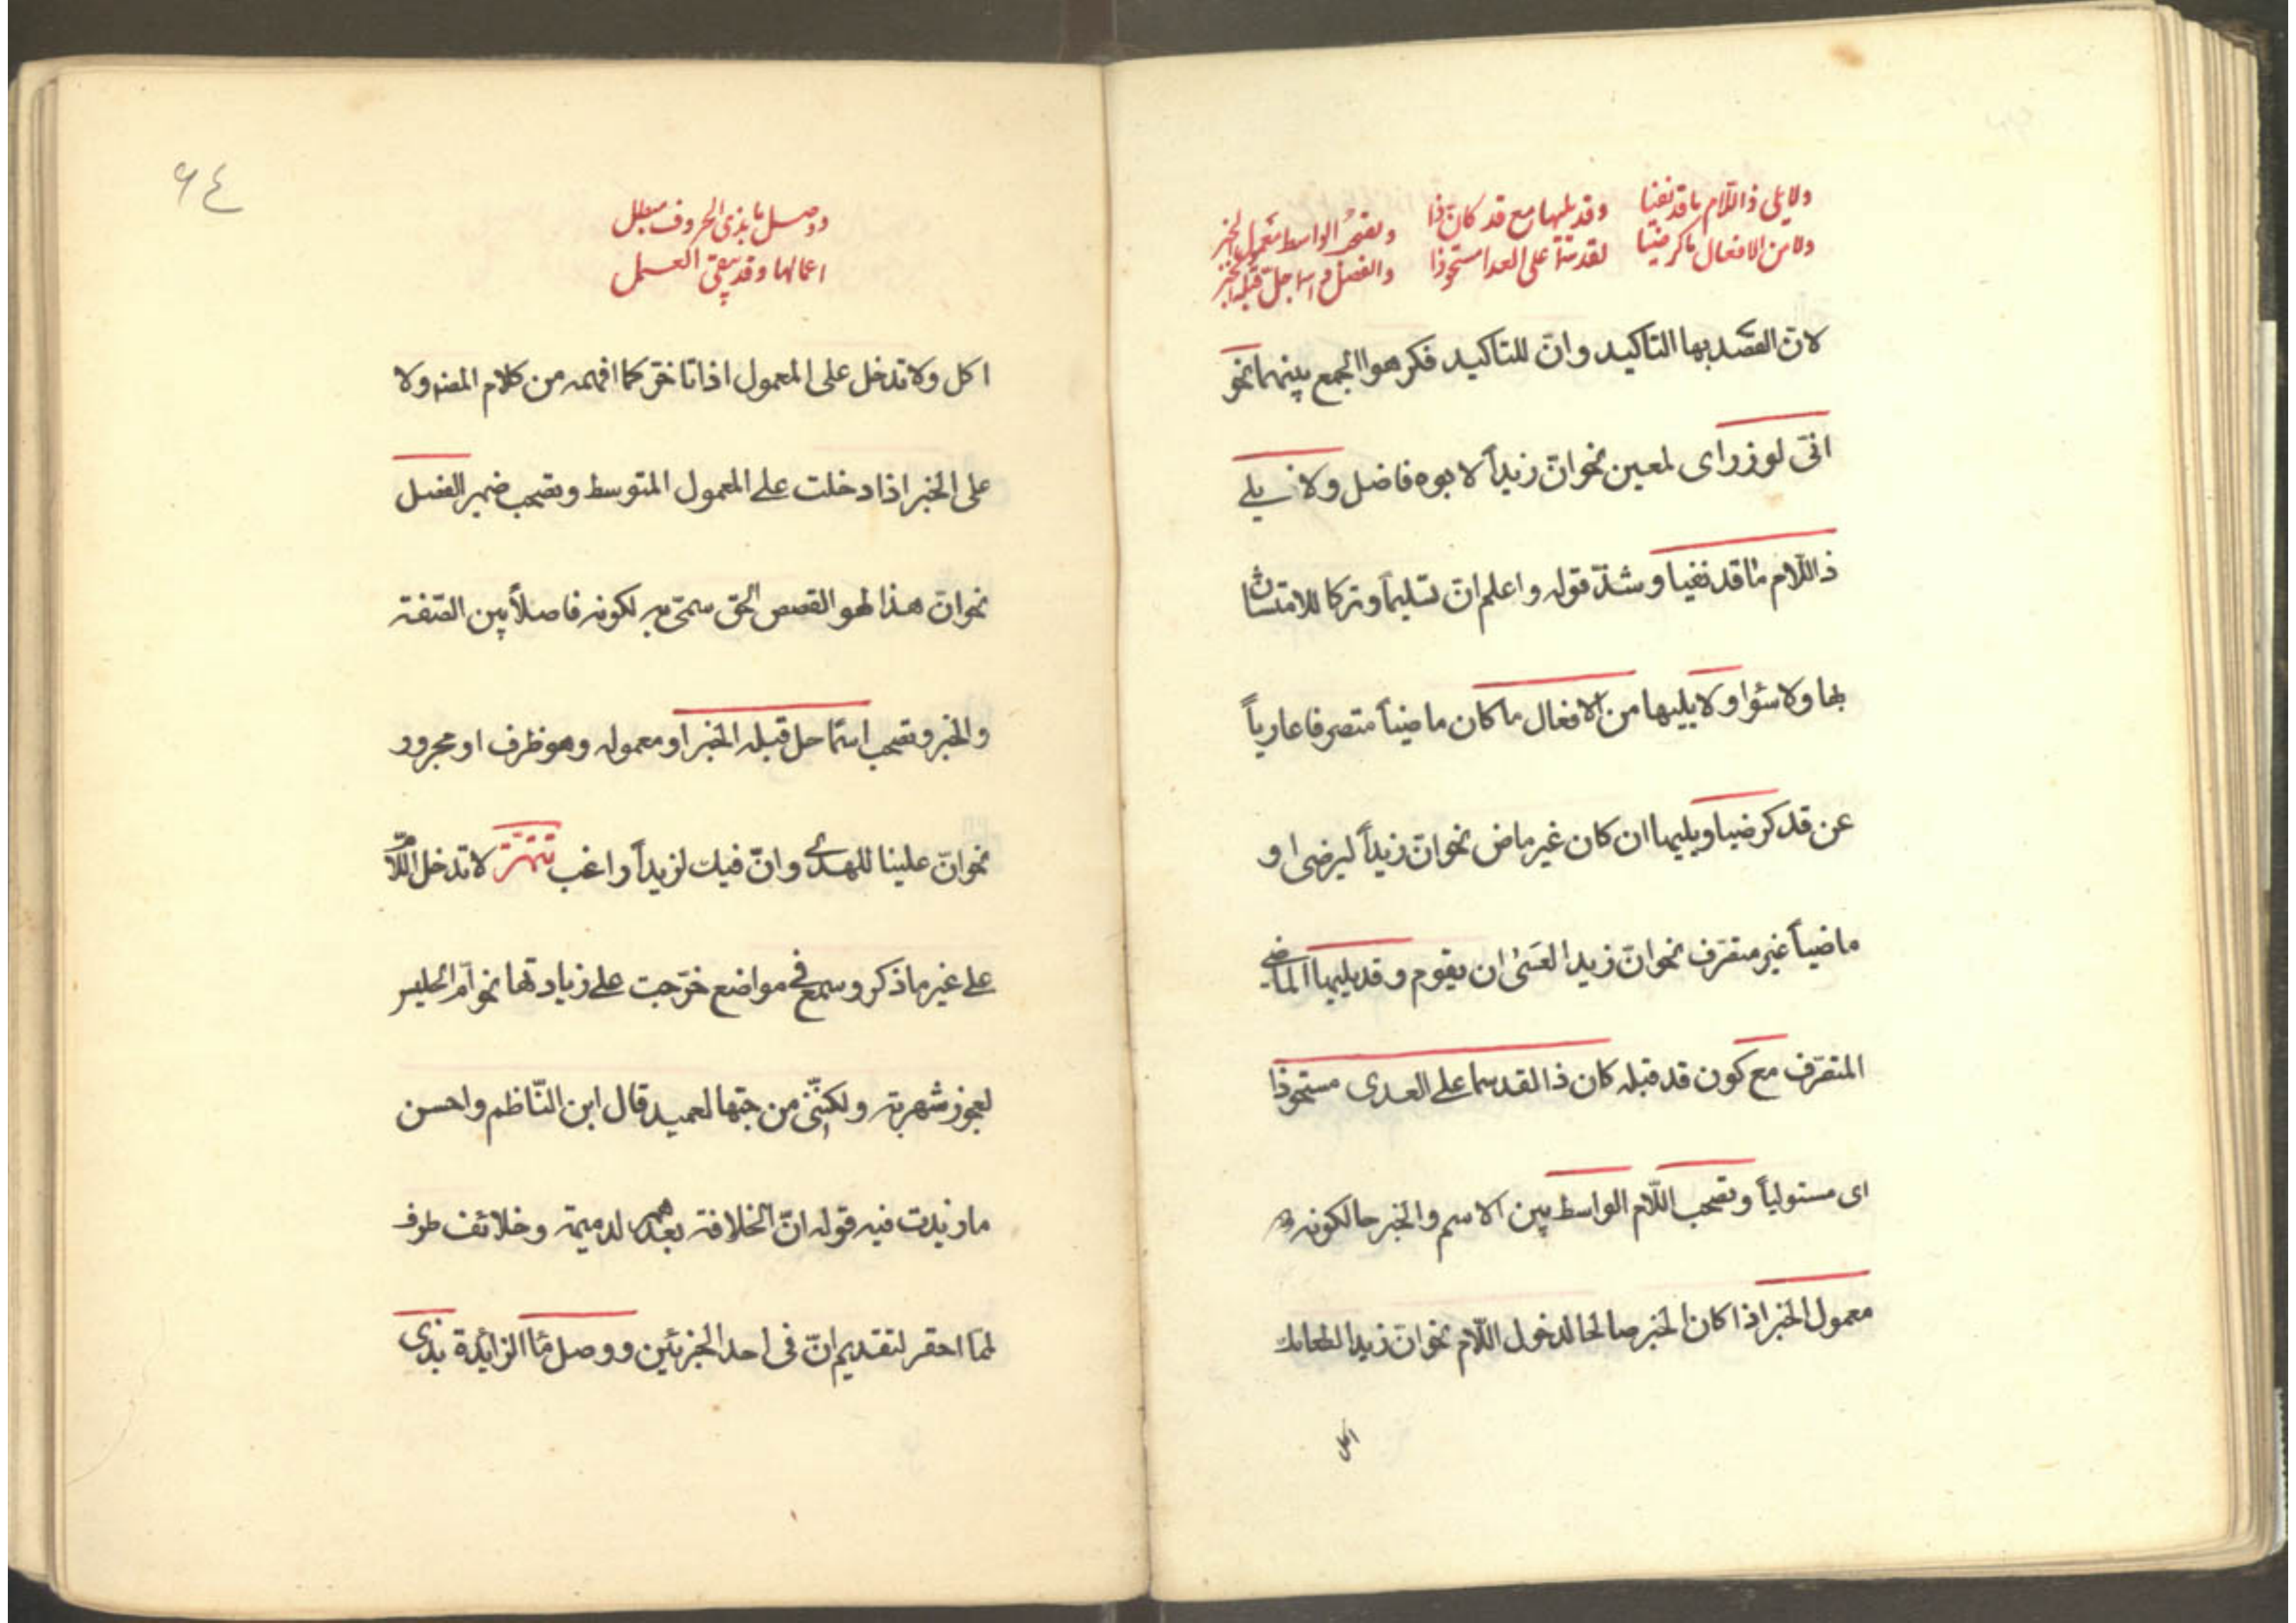 ولا يلي ذا اللّام ما قد نفيا وقد يليها مع قد كان ذا وتصحب الواسط معمول الخبر
ولا من الافعال ما كرضيا لقد سما على العدا مستحوذا والفصل واسما حلّ قبله الخبر
لانّ القصد بها التاكيد وانّ للتاكيد فكرهوا الجمع بينهما نحو
انّى لوزر اى لمعين نحو انّ زيداً لابوه فاضل ولا يلے
ذا اللّام ما قد نفيا وشذّ قوله واعلم انّ تسليماً وتركا للا متشابهان
ولا سواء ولا يليها من الافعال ما كان ماضياً متصرفا عارياً
عن قد كرضيا ويليها ان كان غير ماض نحو انّ زيداً ليرضى او
ماضياً غير متصرّف نحو انّ زيدا لعسىٰ ان يقوم وقد يليها الماضے
المتصرّف مع كون قد قبله كان ذا لقد سما علے العدى مستحوذا
اى مستولياً وتصحب اللّام الواسط بين الاسم والخبر حالكونه
معمول الخبر اذا كان الخبر صالحا لدخول اللّام نحو انّ زيدا لطعامك
اكل
٦٤
ووصل ما بذى الحروف مبطل
اعمالها وقد يبقّى العمل
اكل ولا تدخل على المعمول اذا تاخّر كما افهمه من كلام المصنه ولا
على الخبر اذا دخلت علے المعمول المتوسط وتصحب ضمير الفصل
نحو انّ هذا لهو القصص الحق سمّى به لكونه فاصلاً بين الصّفة
والخبر وتصحب اسمّا حل قبله الخبر او معموله وهو ظرف او مجرور
نحو انّ علينا للهدے وانّ فيك لزيداً راغب تتمّة لا تدخل اللّام
علے غير ما ذكر وسمع فے مواضع خرّجت علے زيادتها نحو امّ الحليس
لعجوز شهربة ولكنّنى من حبّها لعميد قال ابن النّاظم واحسن
ما زيدت فيه قوله انّ الخلافة بعدهم لدميمة وخلائف ظرف
لمّا احقر لتقديم انّ فى احد الجزئين ووصل ما الزائدة بذى